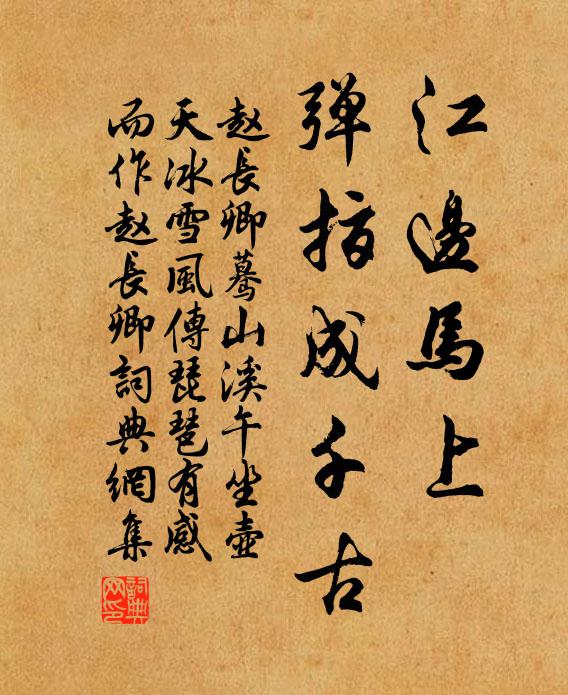 江邊馬上
弹指成千古
赵長卿蓦山溪午坐壺
天冰雪風傳琵琶有感
而作赵長卿詞典網集
詞典網印